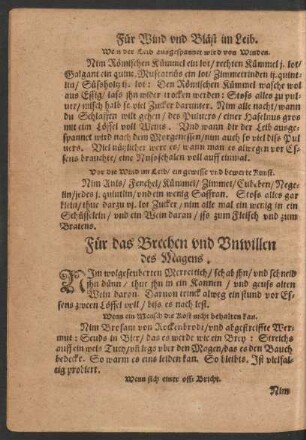 Für Wind vnd Bläst im Leib.
Wem der Leib außgespannet wird von Winden.
Nim Römischen Kümmel ein lot/ rechten Kümmel j. lot/
Galgant ein quint. Muscatnüs ein lot/ Zimmetrinden ij. quint-
lin/ Süßholtz ij. lot: Den Römischen Kümmel wasche wol
aus Essig/ laß ihn wider trocken werden: Stoß alles zu pul-
uer/ misch halb so viel Zucker darunter. Nim alle nacht/ wann
du Schlaffen wilt gehen/ des Puluers/ einer Haselnus gros
mit ein Löffel voll Weins. Wird wann dir der Leib ausge-
spannet wird nach dem Morgenessen/ nim auch so viel diss Pul-
uers. Viel nützlicher were es/ wann man es alwegen vor Es-
sens brauchte/ eine Nussschalen voll auff einmal.
Für die Wind im Leib/ ein gewisse vnd bewerte Kunst.
Nim Anis/ Fenchel/ Kümmel/ Zimmet/ Cubeben/ Nege-
lin/ jedes j. quintlin/ vnd ein wenig Saffran. Stoß alles gar
klein/ thue darzu vj. lot Zucker/ nim alle mal ein wenig in ein
Schüsselein/ vnd ein Wein daran/ iss zum Fleisch vnd zum
Bratens.
Für das Brechen vnd Vnwillen
des Magens.
Nim wolgeseuberten Merrettich/ schab ihn/ vnd schneid
ihn dünn/ thue ihn in ein Kannen/ vnd geuss alten
Wein daran. Daruon trinck alweg ein stund vor Es-
sens zween Löffel voll/ biss es nach lest.
Wenn ein Mensch die Kost nicht behalten kan.
Nim Brosam von Reckenbrodt/ vnd abgestreiffte Wer-
mut: Seuds in Bier/ das es werde wie ein Brey: Streichs
auff ein wöls Tuch/ vñ legs vber den Magen/ das es den Bauch
bedecke. So warm es eins leiden kan. So bleibts. Ist vielfal-
tig probiert.
Wenn sich einer offt Bricht.
Nim